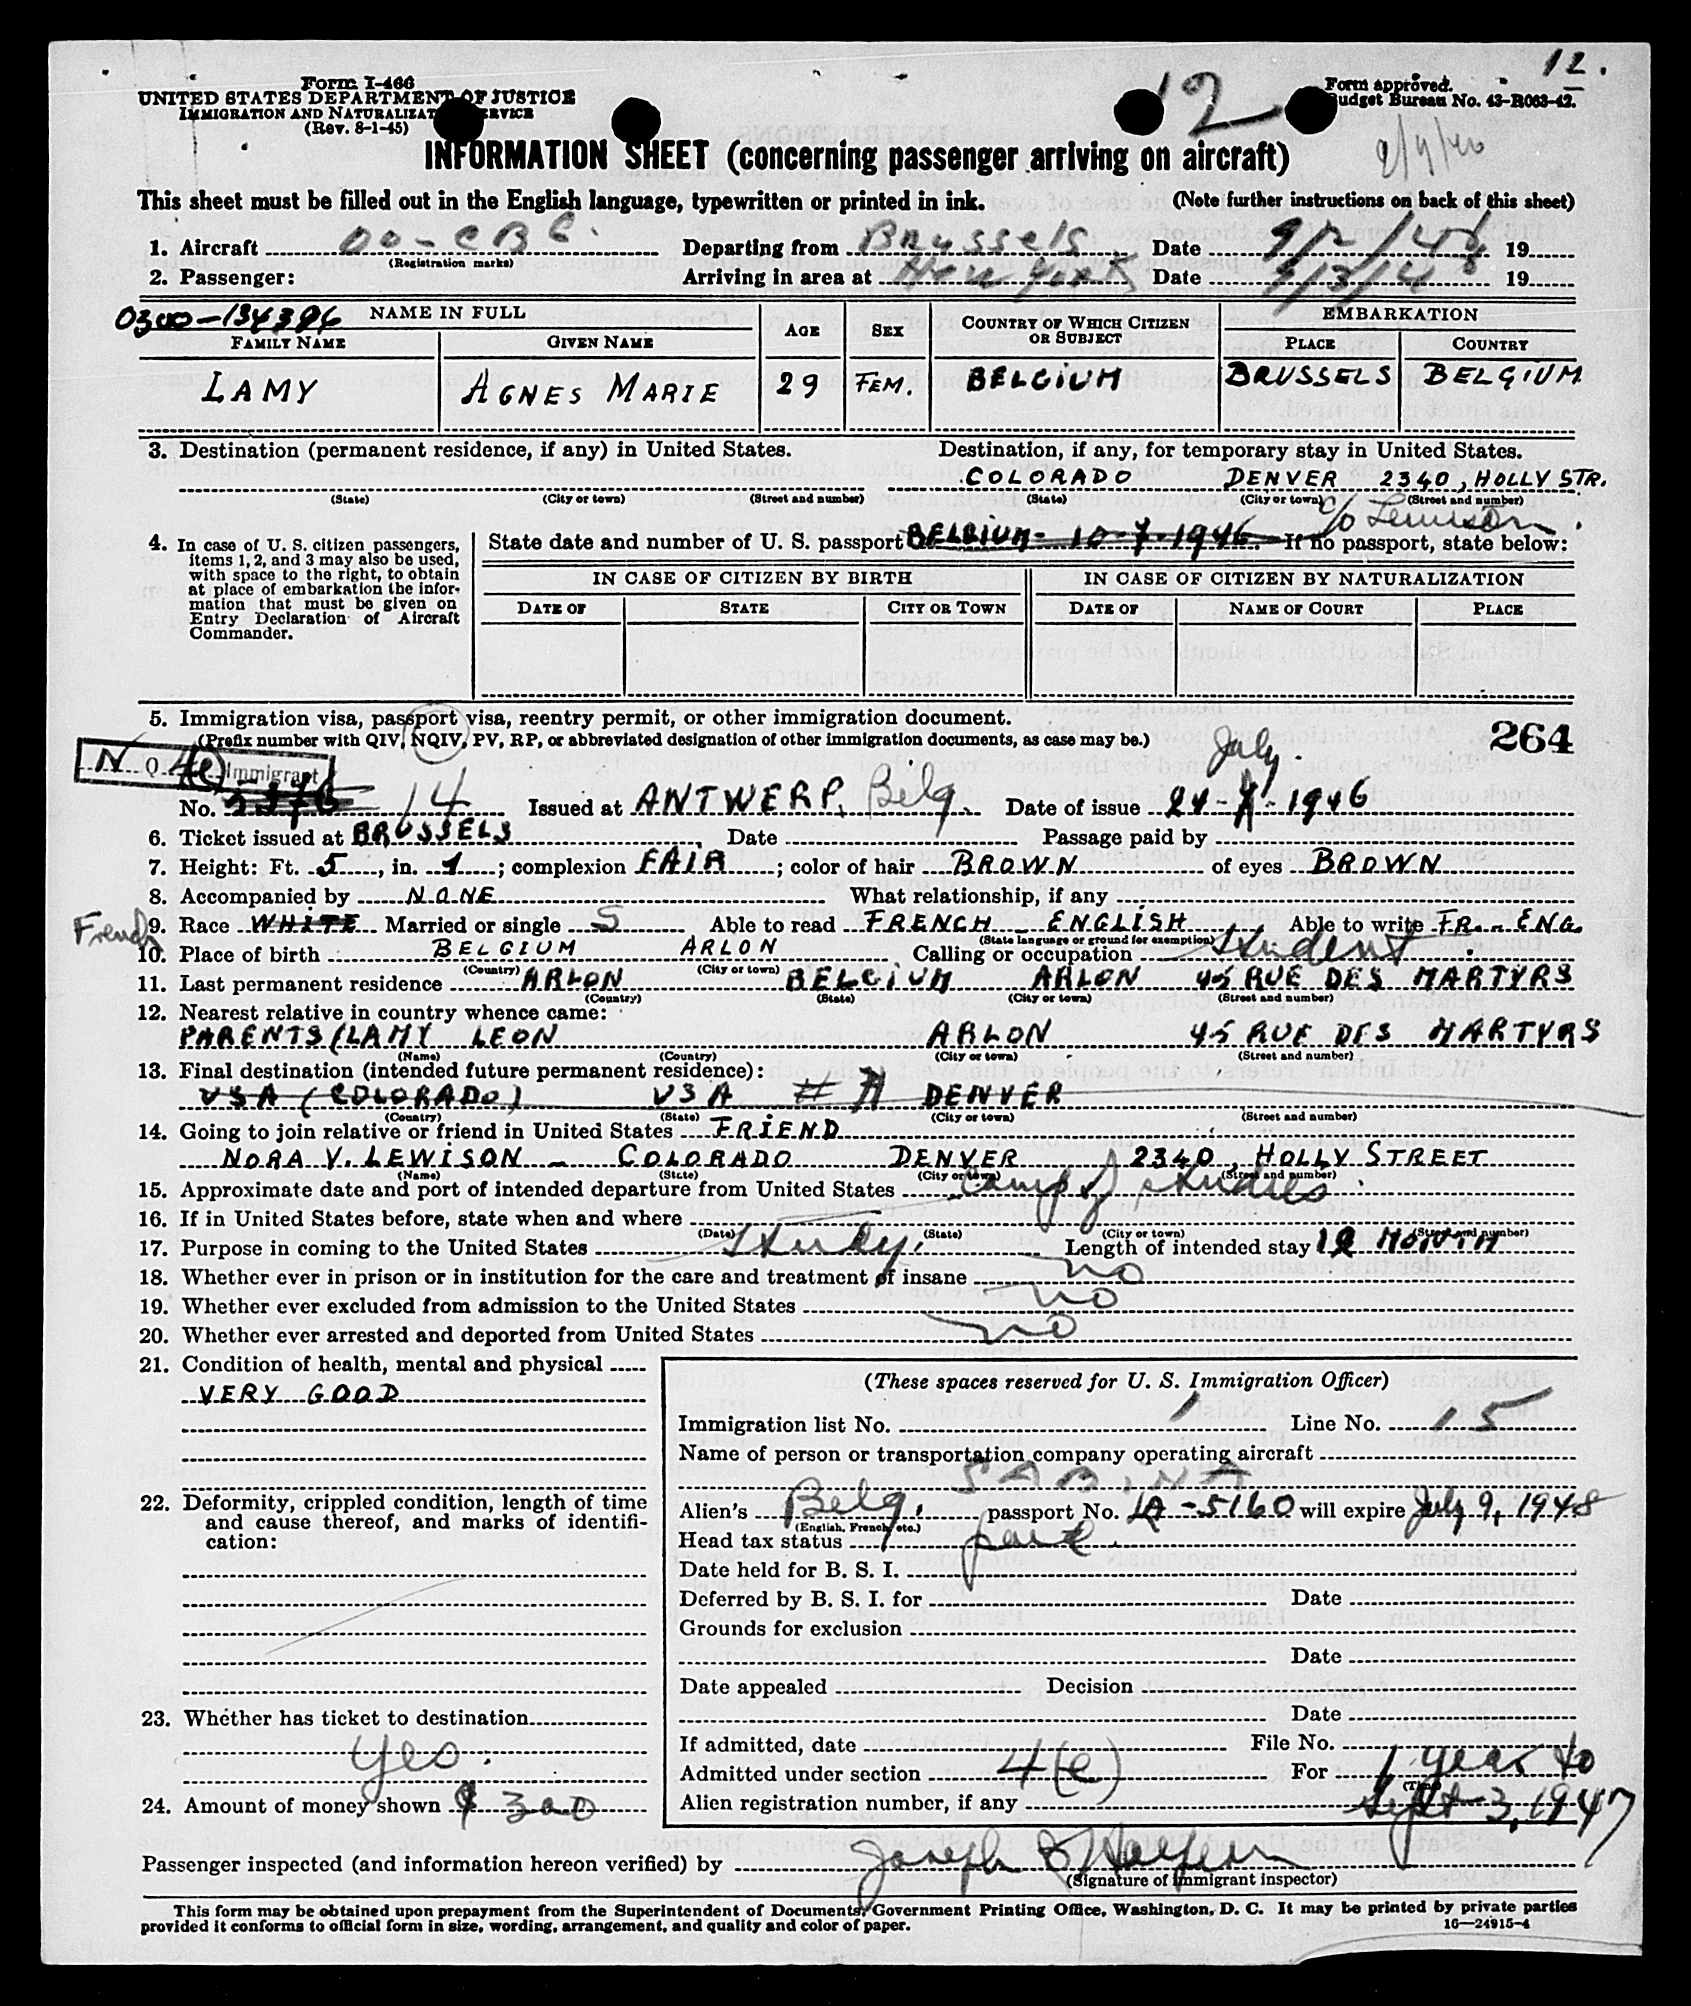 12.
Form I-466
UNITED STATES DEPARTMENT OF JUSTICE
IMMIGRATION AND NATURALIZATION SERVICE
(Rev. 8-1-45)
12
Form approved.
Budget Bureau No. 43-R063-42.
INFORMATION SHEET (concerning passenger arriving on aircraft)
This sheet must be filled out in the English language, typewritten or printed in ink. (Note further instructions on back of this sheet)
1. Aircraft OO-CBC. Departing from Brussels Date 9/2/46 19
(Registration marks)
2. Passenger: Arriving in area at New York Date 9/3/46 19
0300-134396 NAME IN FULL AGE SEX COUNTRY OF WHICH CITIZEN OR SUBJECT EMBARKATION
FAMILY NAME GIVEN NAME PLACE COUNTRY
LAMY AGNES MARIE 29 FEM. BELGIUM BRUSSELS BELGIUM
3. Destination (permanent residence, if any) in United States. Destination, if any, for temporary stay in United States.
COLORADO DENVER 2340, HOLLY STR.
(State) (City or town) (Street and number) (State) (City or town) (Street and number)
c/o Lewison.
4. In case of U. S. citizen passengers, items 1, 2, and 3 may also be used, with space to the right, to obtain at place of embarkation the information that must be given on Entry Declaration of Aircraft Commander.
State date and number of U. S. passport BELGIUM - 10-7-1946 If no passport, state below:
IN CASE OF CITIZEN BY BIRTH IN CASE OF CITIZEN BY NATURALIZATION
DATE OF STATE CITY OR TOWN DATE OF NAME OF COURT PLACE
5. Immigration visa, passport visa, reentry permit, or other immigration document. 264
(Prefix number with QIV, NQIV, PV, RP, or abbreviated designation of other immigration documents, as case may be.)
N Q 4(e) Immigrant
July
No. 14 Issued at ANTWERP, Belg. Date of issue 24-7-1946
6. Ticket issued at BRUSSELS Date Passage paid by
7. Height: Ft. 5, in. 1; complexion FAIR; color of hair BROWN of eyes BROWN
8. Accompanied by NONE What relationship, if any
French
9. Race WHITE Married or single S Able to read FRENCH - ENGLISH, Able to write FR. - ENG.
(State language or ground for exemption)
10. Place of birth BELGIUM ARLON Calling or occupation Student
(Country) (City or town)
11. Last permanent residence ARLON BELGIUM ARLON 45 RUE DES MARTYRS
(Country) (State) (City or town) (Street and number)
12. Nearest relative in country whence came:
PARENTS (LAMY LEON ARLON 45 RUE DES MARTYRS
(Name) (Country) (City or town) (Street and number)
13. Final destination (intended future permanent residence):
USA (COLORADO) USA DENVER
(Country) (State) (City or town) (Street and number)
14. Going to join relative or friend in United States FRIEND
NORA V. LEWISON - COLORADO DENVER 2340, HOLLY STREET
(Name) (State) (City or town) (Street and number)
15. Approximate date and port of intended departure from United States comp of studies
16. If in United States before, state when and where
(Date) (State) (City or town) (Street and number)
17. Purpose in coming to the United States Study. Length of intended stay 12 MONTH
18. Whether ever in prison or in institution for the care and treatment of insane no
19. Whether ever excluded from admission to the United States no
20. Whether ever arrested and deported from United States no
21. Condition of health, mental and physical
VERY GOOD
22. Deformity, crippled condition, length of time and cause thereof, and marks of identification:
23. Whether has ticket to destination
yes.
24. Amount of money shown $ 300
(These spaces reserved for U. S. Immigration Officer)
Immigration list No. 1 Line No. 15
Name of person or transportation company operating aircraft
SABINA
Alien's Belg. passport No. LA-5160 will expire July 9, 1948
(English, French, etc.)
Head tax status paid.
Date held for B. S. I.
Deferred by B. S. I. for Date
Grounds for exclusion
Date
Date appealed Decision
Date
If admitted, date File No.
Admitted under section 4(e) For 1 year to
(Time)
Alien registration number, if any Sept 3, 1947
Passenger inspected (and information hereon verified) by Joseph
(Signature of immigrant inspector)
This form may be obtained upon prepayment from the Superintendent of Documents, Government Printing Office, Washington, D. C. It may be printed by private parties
provided it conforms to official form in size, wording, arrangement, and quality and color of paper. 16—24915-4